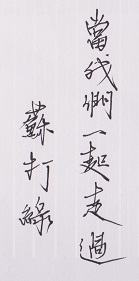 當我們一起走過
蘇打綠